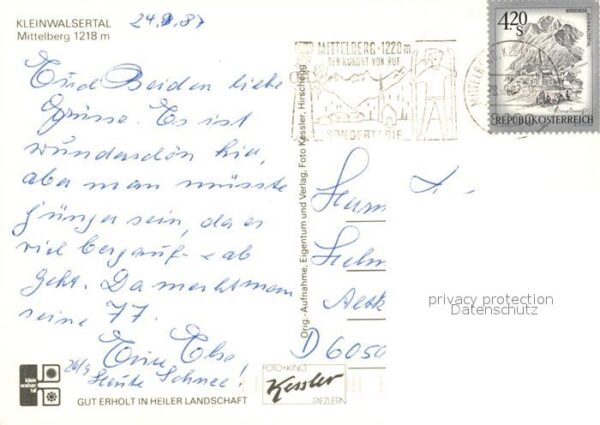 KLEINWALSERTAL
Mittelberg 1218 m
Euch Beiden liebe
Grüsse. Es ist
wunderschön hier,
aber man müsste
jünger sein, da es
viel bergauf - + ab
geht. Da merkt man
seine 77.
Eure Else
26/9
Heute Schnee!
GUT ERHOLT IN HEILER LANDSCHAFT
FOTO+KINO
Kessler
RIEZLERN
Orig.-Aufnahme, Eigentum und Verlag, Foto Kessler, Hirschegg
MITTELBERG-1220m
DER KURORT VON RUF
SONDERTARIF
4.20
S
HIRSCHEGG
KLEINWALSERTAL
REPUBLIK ÖSTERREICH
D 6050
privacy protection
Datenschutz